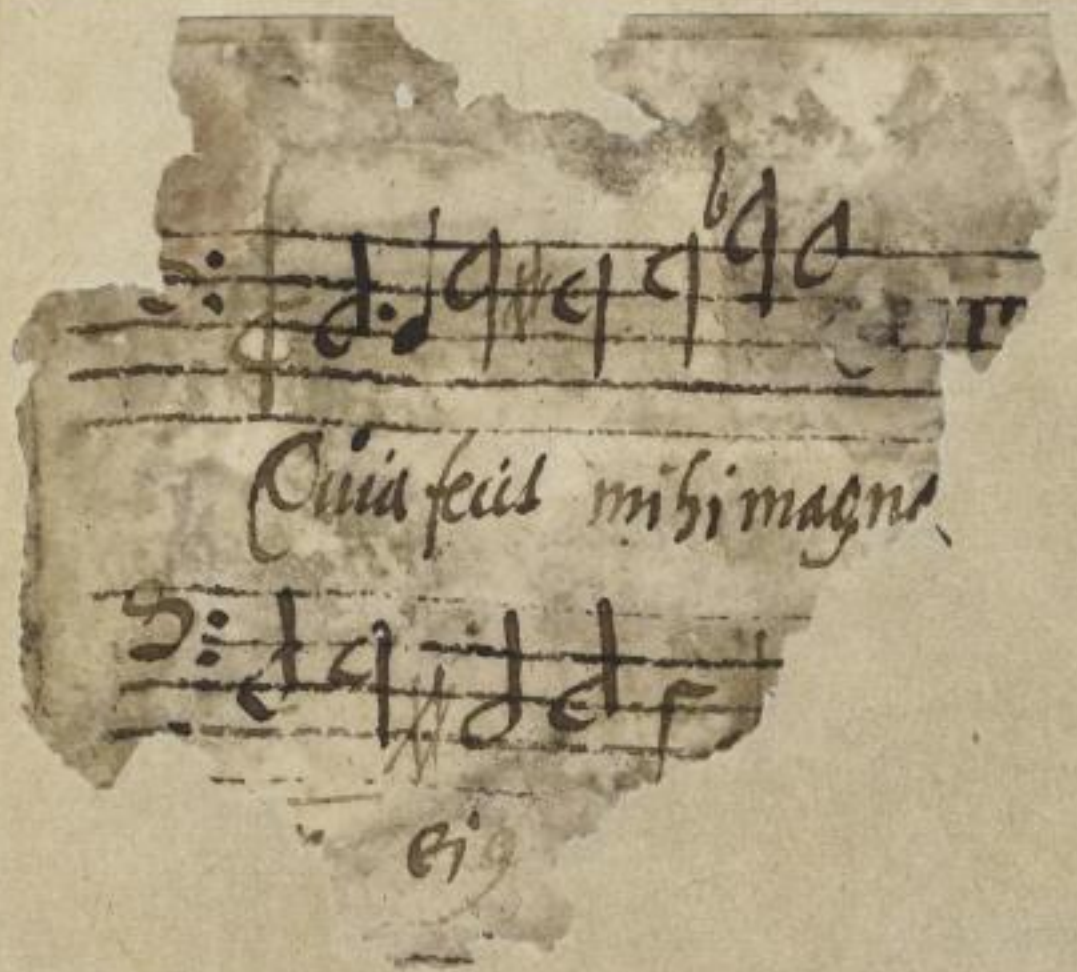 Quia fecit mihi magna
eiꝰ